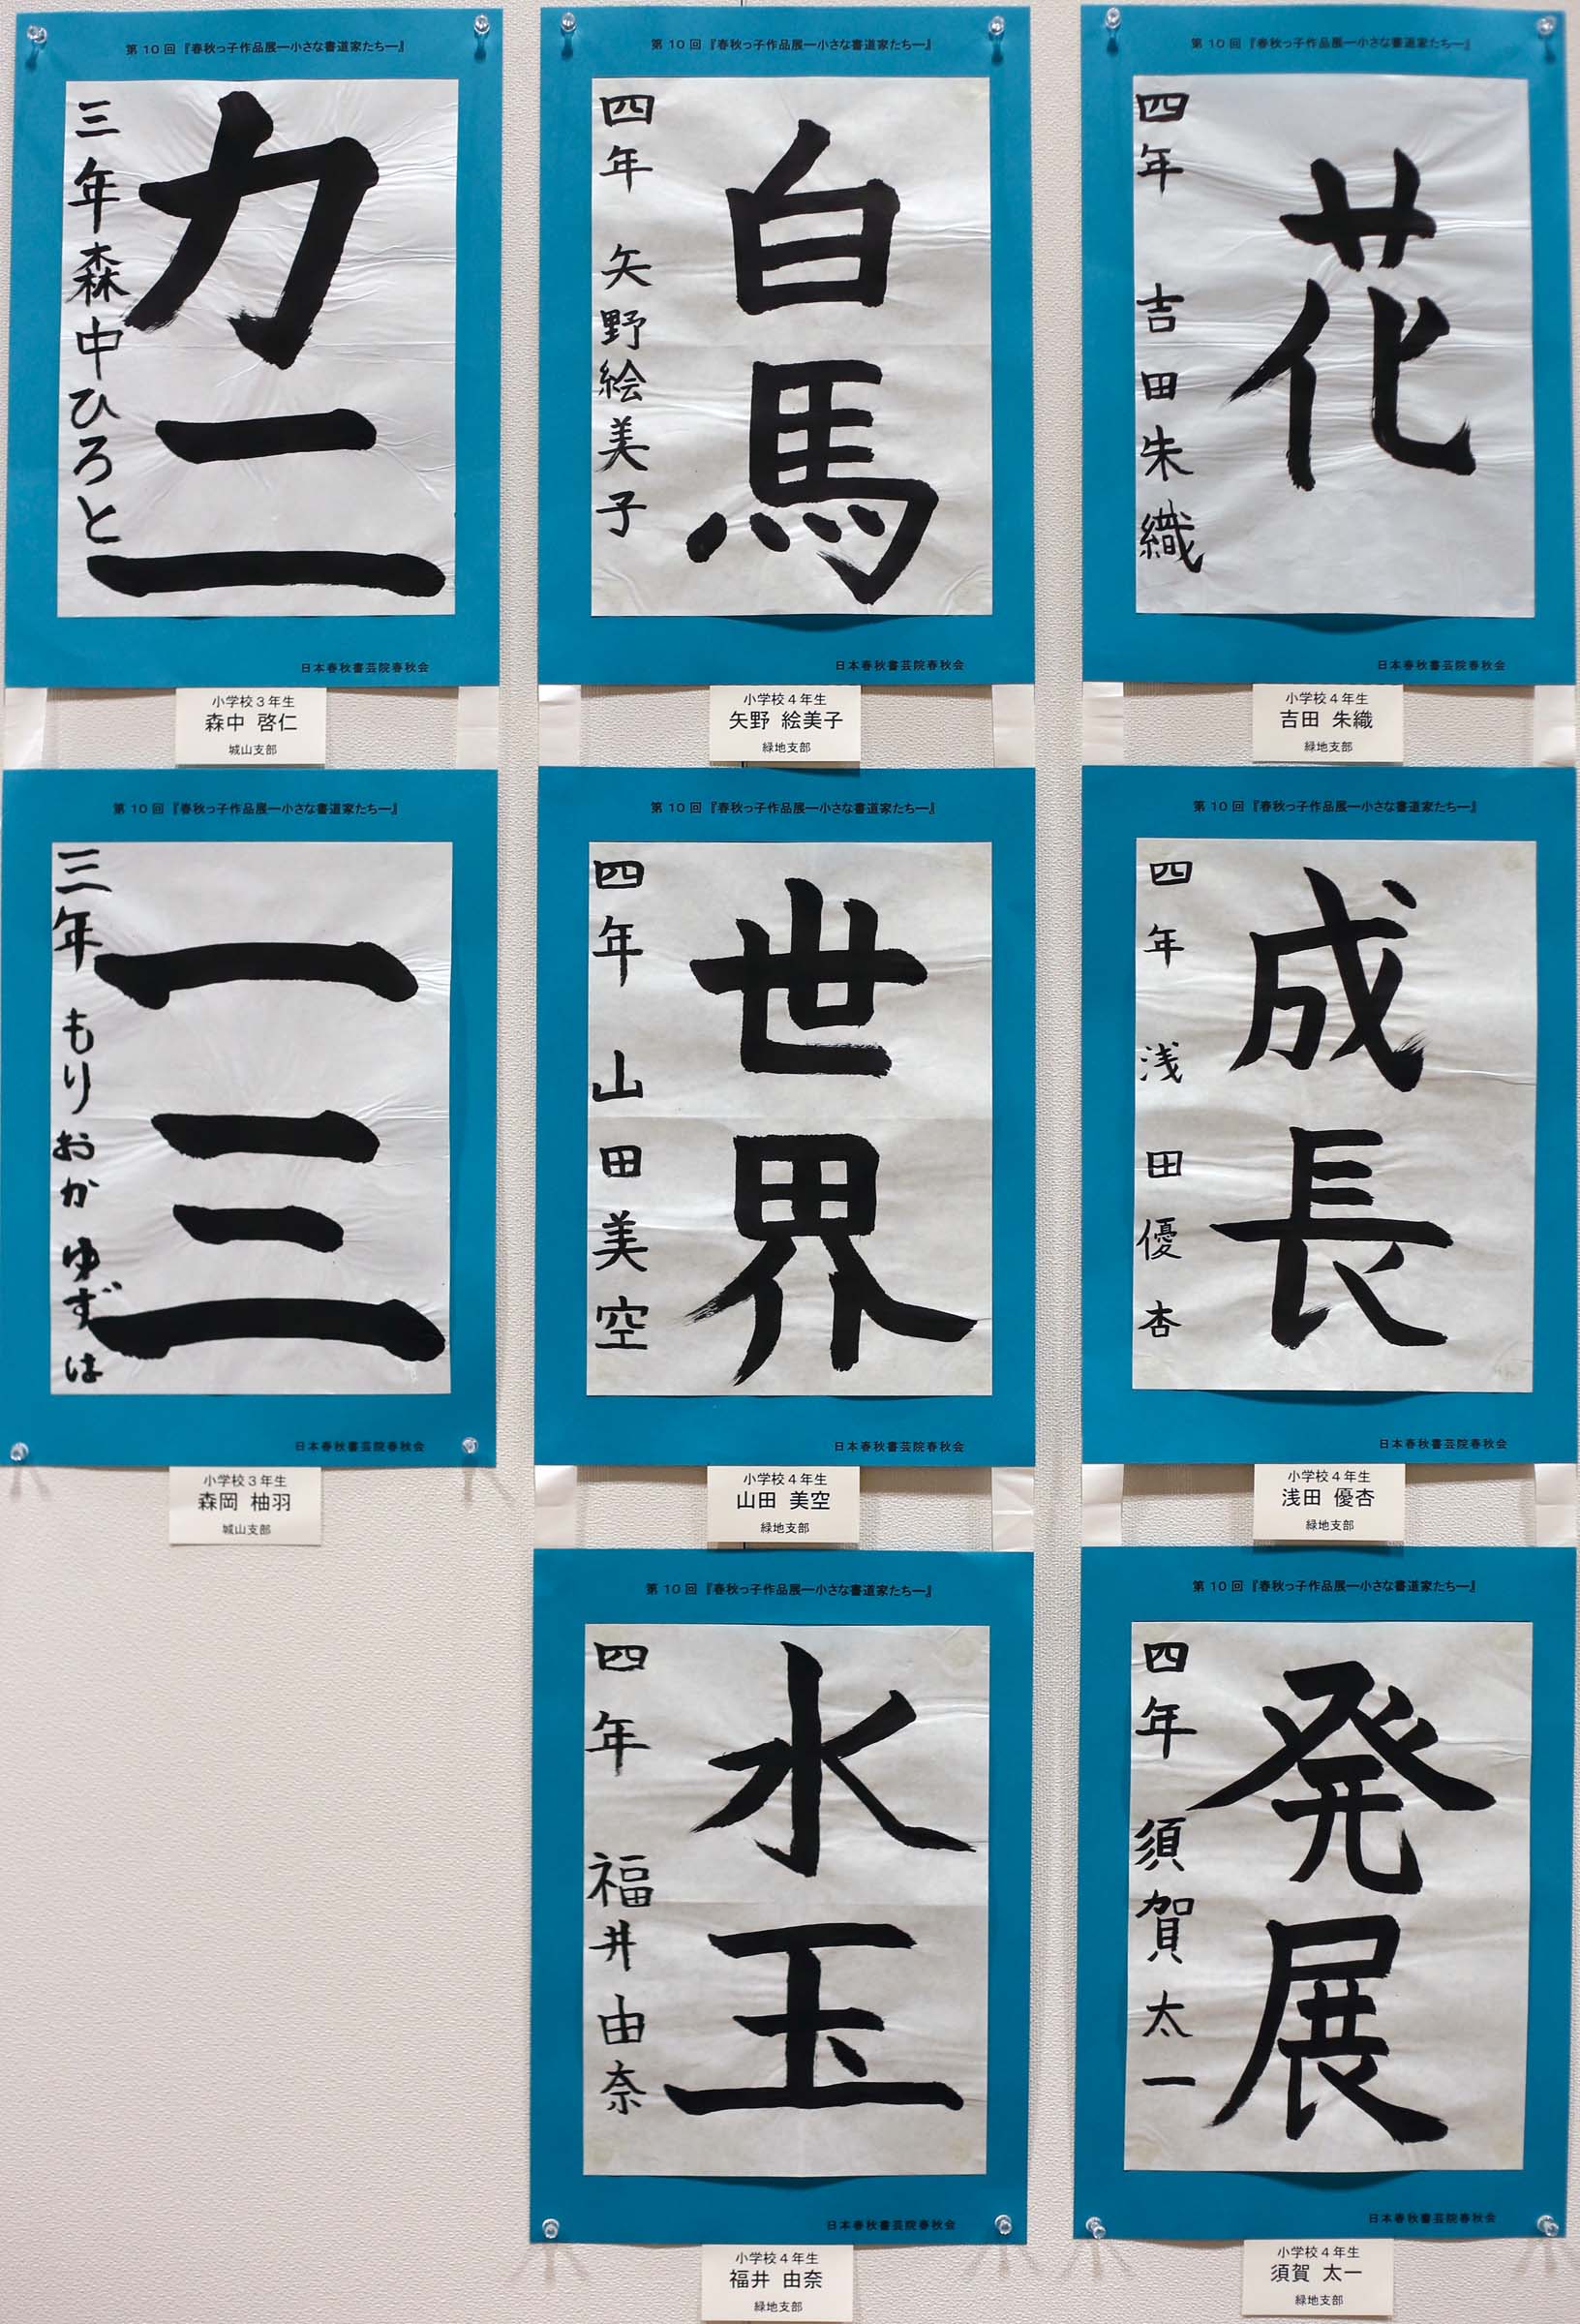 第10回『春秋っ子作品展―小さな書道家たち―』
カニ
三年森中ひろと
日本春秋書芸院春秋会
小学校3年生
森中 啓仁
城山支部
第10回『春秋っ子作品展―小さな書道家たち―』
白馬
四年 矢野絵美子
日本春秋書芸院春秋会
小学校4年生
矢野 絵美子
緑地支部
第10回『春秋っ子作品展―小さな書道家たち―』
花
四年 吉田朱織
日本春秋書芸院春秋会
小学校4年生
吉田 朱織
緑地支部
第10回『春秋っ子作品展―小さな書道家たち―』
一三
三年 もりおか ゆずは
日本春秋書芸院春秋会
小学校3年生
森岡 柚羽
城山支部
第10回『春秋っ子作品展―小さな書道家たち―』
世界
四年 山田美空
日本春秋書芸院春秋会
小学校4年生
山田 美空
緑地支部
第10回『春秋っ子作品展―小さな書道家たち―』
成長
四年 浅田優杏
日本春秋書芸院春秋会
小学校4年生
浅田 優杏
緑地支部
第10回『春秋っ子作品展―小さな書道家たち―』
水玉
四年 福井由奈
日本春秋書芸院春秋会
小学校4年生
福井 由奈
緑地支部
第10回『春秋っ子作品展―小さな書道家たち―』
発展
四年 須賀太一
日本春秋書芸院春秋会
小学校4年生
須賀 太一
緑地支部